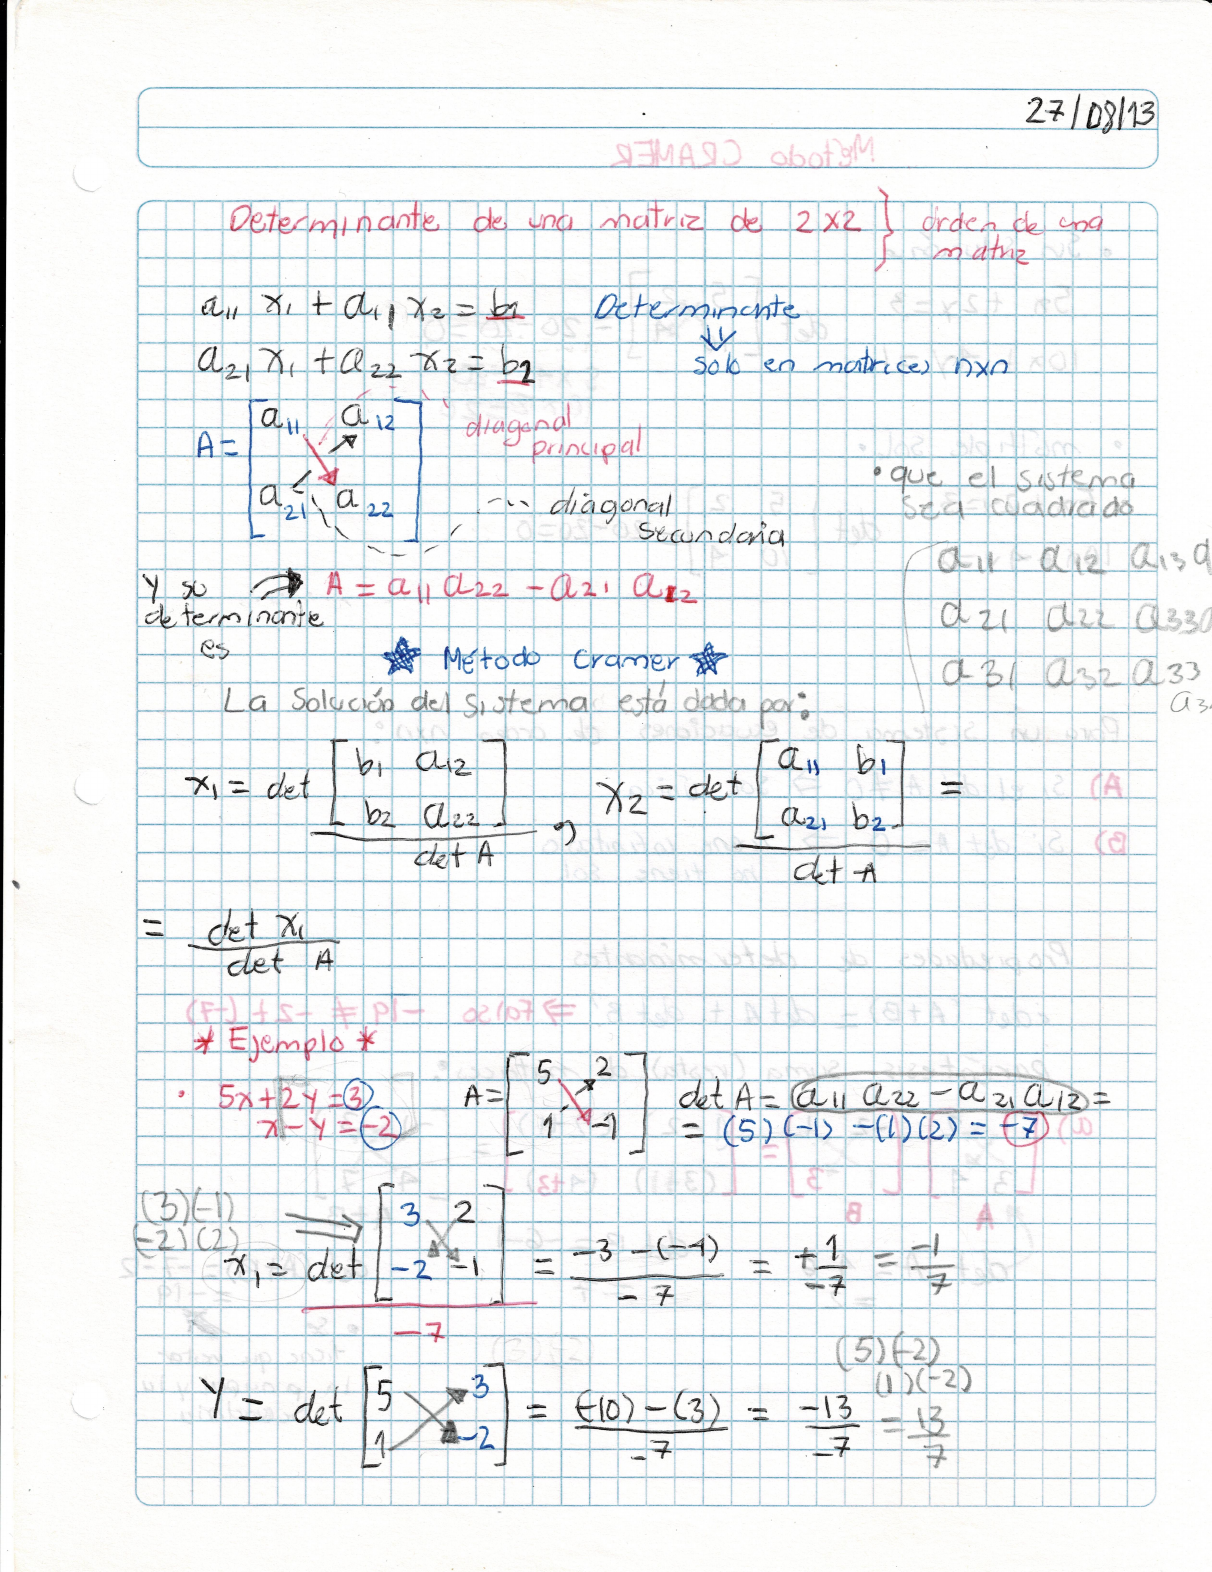 27/08/13
Determinante de una matriz de 2x2 } orden de una matriz
a11 x1 + a11 x2 = b1
a21 x1 + a22 x2 = b2
Determinante
⇓
solo en matrices nxn
A = [ a11 a12
a21 a22 ]
diagonal
principal
--- diagonal
secundaria
• que el sistema
sea cuadrado
a11 - a12 a13
a21 a22 a33
a31 a32 a33
Y su
determinante
es
⇒ A = a11 a22 - a21 a12
★ Método Cramer ★
La Solución del sistema está dada por:
x1 = det [ b1 a12
b2 a22 ]
det A
, x2 = det [ a11 b1
a21 b2 ] =
det A
= det x1
det A
* Ejemplo *
• 5x+2y=3
x-y=-2
A = [ 5 2
1 -1 ]
det A = a11 a22 - a21 a12 =
= (5)(-1) -(1)(2) = -7
(3)(-1)
(-2)(2)
x1 = det [ 3 2
-2 -1 ]
-7
= -3 -(-4) / -7 = +1 / -7 = -1 / 7
(5)(-2)
(1)(-2)
Y = det [ 5 3
1 -2 ] = (-10) - (3) / -7 = -13 / -7 = 13 / 7